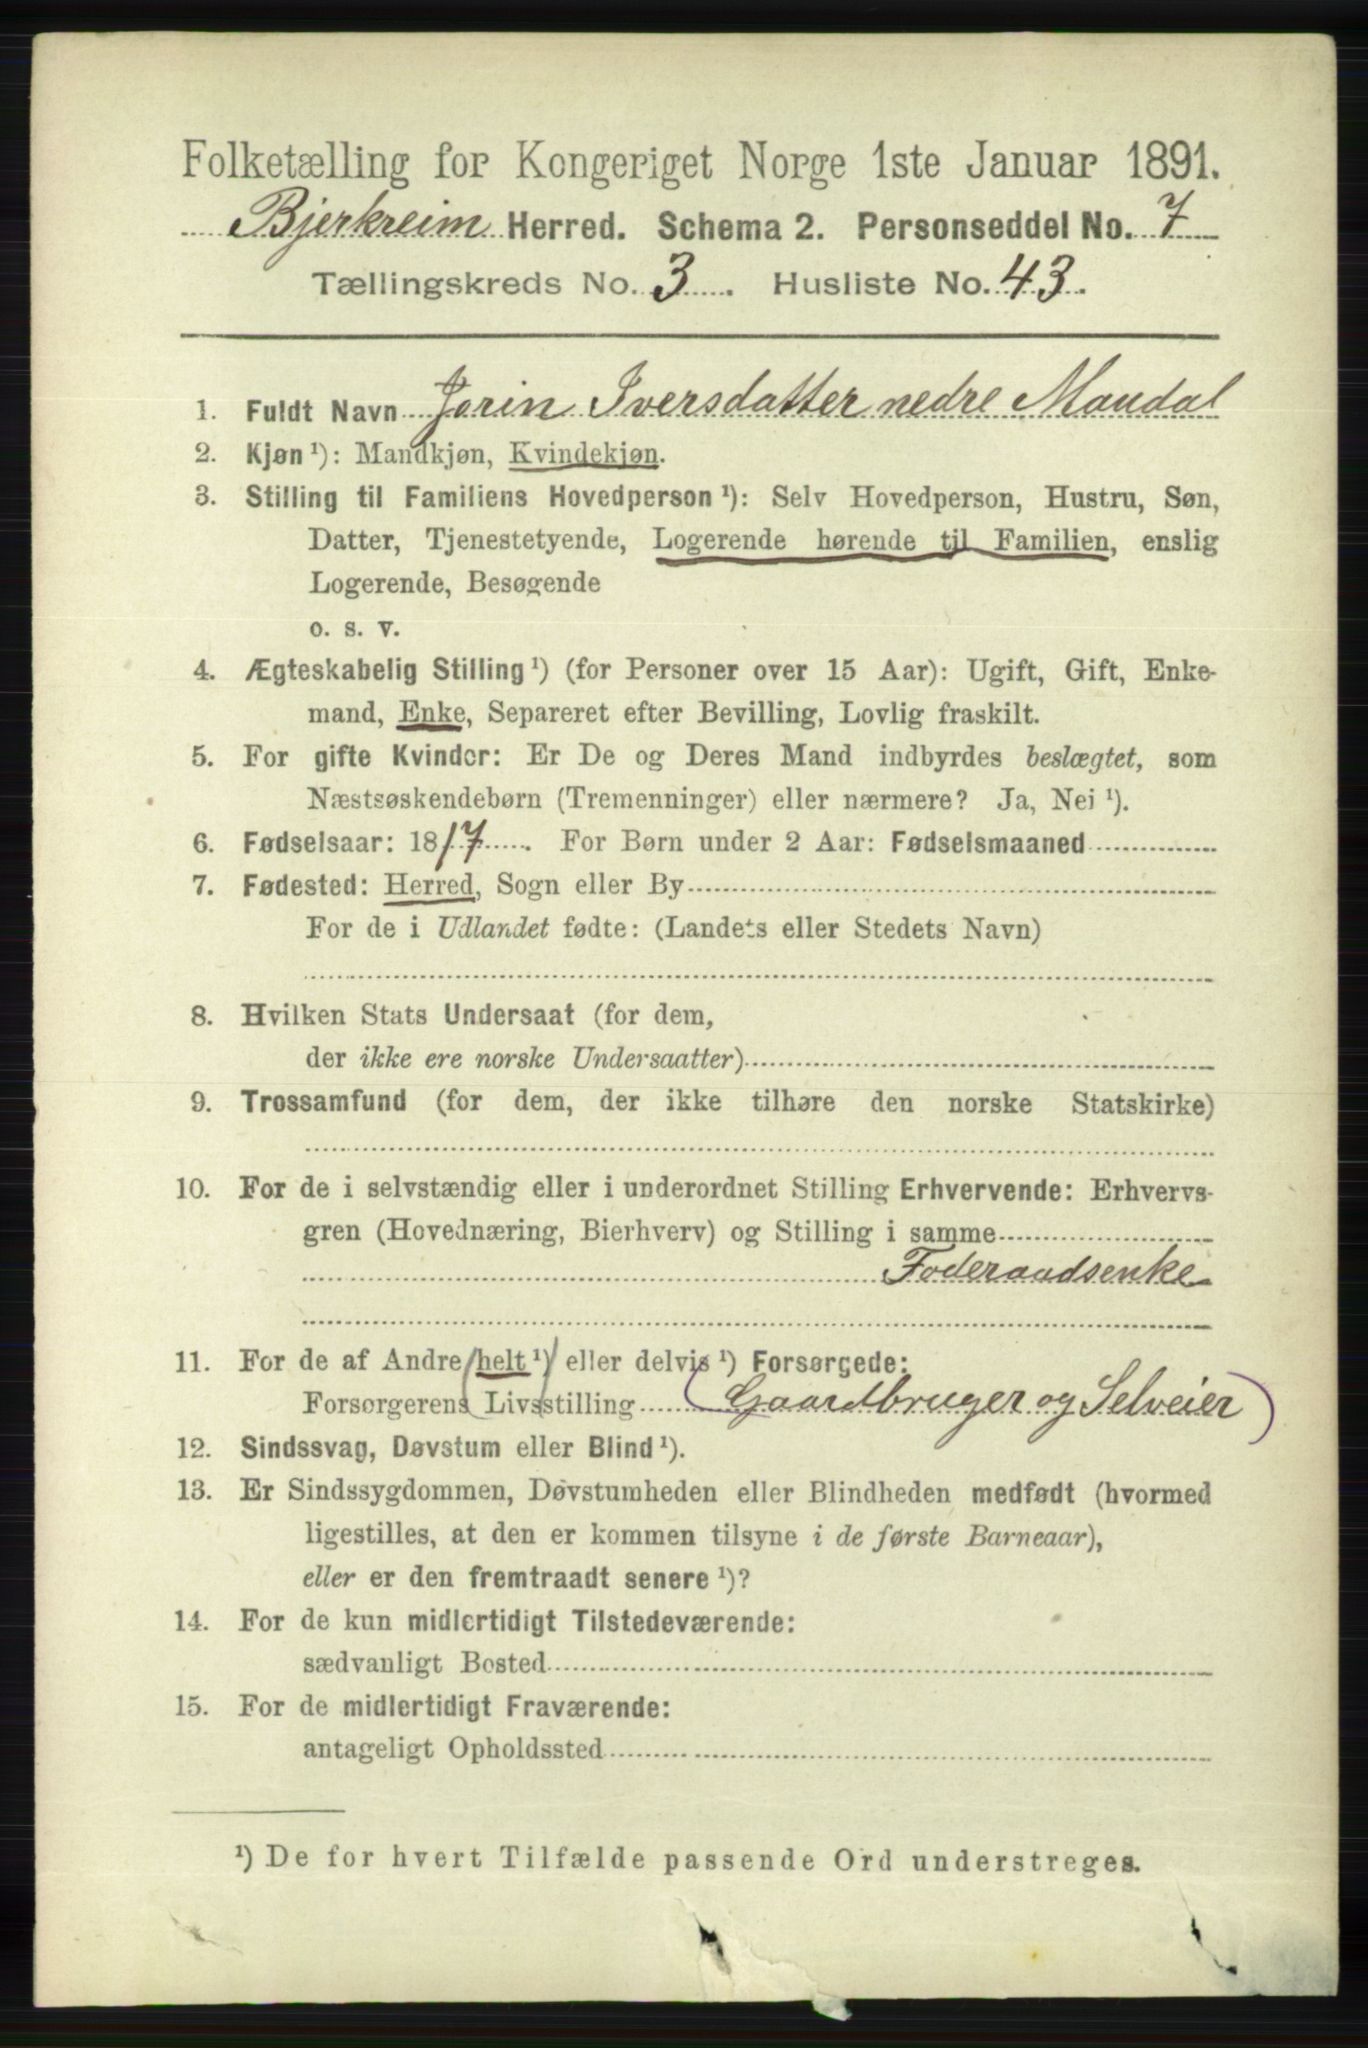 Folketælling for Kongeriget Norge 1ste Januar 1891.
Bjerkreim Herred. Schema 2. Personseddel No. 7
Tællingskreds No. 3. Husliste No. 43.
1. Fuldt Navn Jorin Iversdatter nedre Maudal
2. Kjøn ¹): Mandkjøn, Kvindekjøn.
3. Stilling til Familiens Hovedperson ¹): Selv Hovedperson, Hustru, Søn,
Datter, Tjenestetyende, Logerende hørende til Familien, enslig
Logerende, Besøgende
o. s. v.
4. Ægteskabelig Stilling ¹) (for Personer over 15 Aar): Ugift, Gift, Enke-
mand, Enke, Separeret efter Bevilling, Lovlig fraskilt.
5. For gifte Kvinder: Er De og Deres Mand indbyrdes beslægtet, som
Næstsøskendebørn (Tremenninger) eller nærmere? Ja, Nei ¹).
6. Fødselsaar: 1817. For Børn under 2 Aar: Fødselsmaaned
7. Fødested: Herred, Sogn eller By
For de i Udlandet fødte: (Landets eller Stedets Navn)
8. Hvilken Stats Undersaat (for dem,
der ikke ere norske Undersaatter)
9. Trossamfund (for dem, der ikke tilhøre den norske Statskirke)
10. For de i selvstændig eller i underordnet Stilling Erhvervende: Erhvervs-
gren (Hovednæring, Bierhverv) og Stilling i samme
Foderaadsenke
11. For de af Andre (helt ¹) eller delvis ¹) Forsørgede:
Forsørgerens Livsstilling (Gaardbruger og Selveier)
12. Sindssvag, Døvstum eller Blind ¹).
13. Er Sindssygdommen, Døvstumheden eller Blindheden medfødt (hvormed
ligestilles, at den er kommen tilsyne i de første Barneaar),
eller er den fremtraadt senere ¹)?
14. For de kun midlertidigt Tilstedeværende:
sædvanligt Bosted
15. For de midlertidigt Fraværende:
antageligt Opholdssted
¹) De for hvert Tilfælde passende Ord understreges.